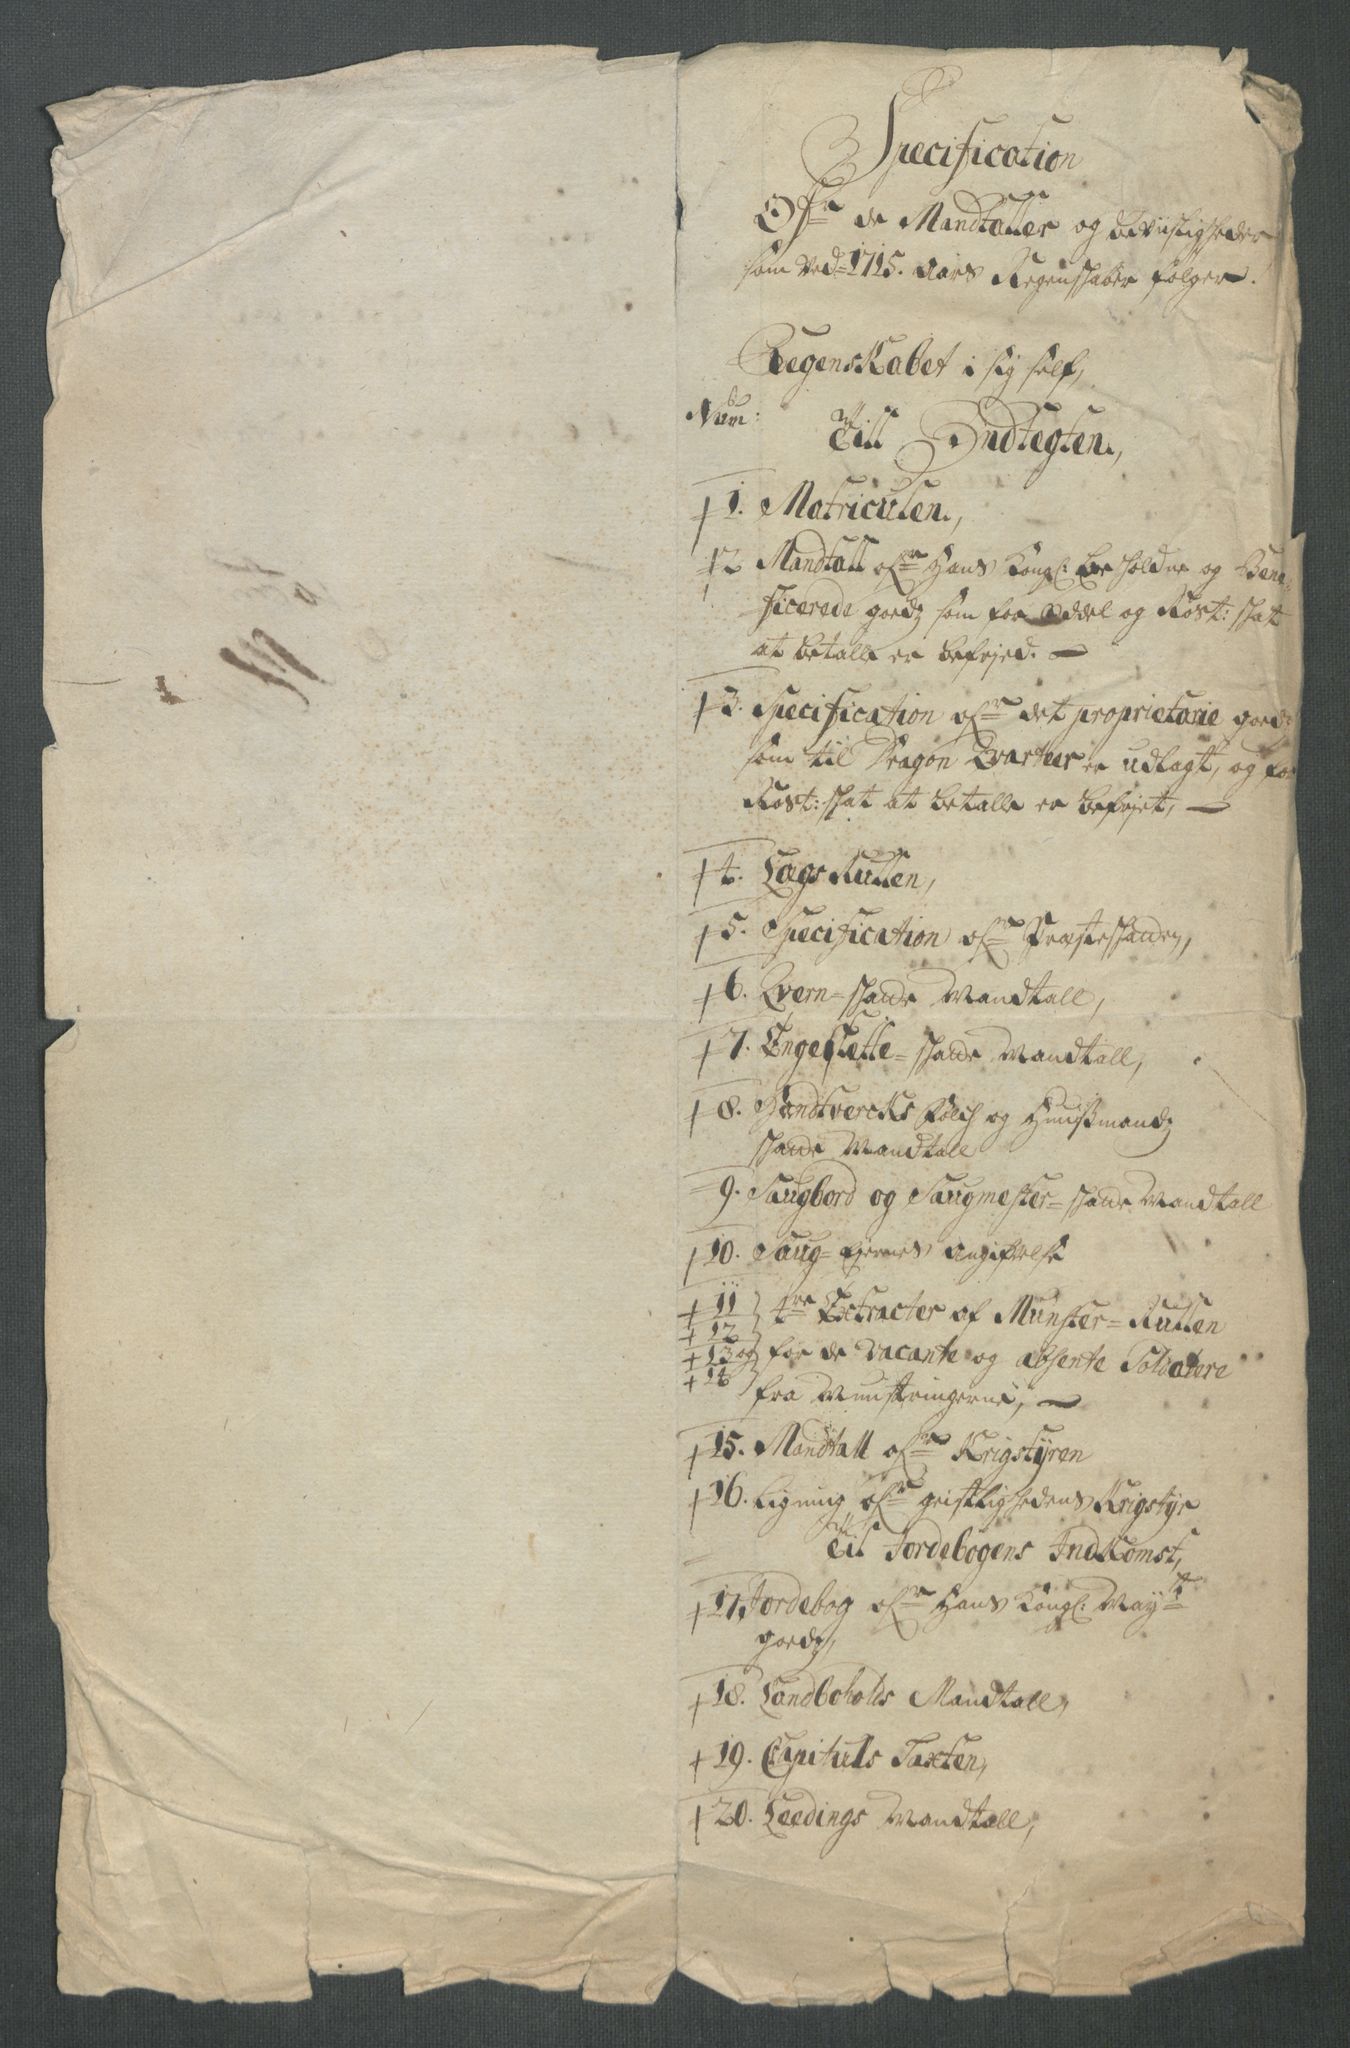 Specification
Ofr de Mandtaller og bevistligheder
som ved 1715. aars Regenskaber følger.
Regenskabet i sig self,
Num: Till Indtegten,
1. Matriculen,
2 Mandtall ofr Hans Kongl: beholdne og Bene-
ficerede goedz som for Oddel og Rost: skat
at betalle er befrjed.
3. Specification ofr det proprietarie goedz
som til Dragon Qvarteer er udlagt, og for
Rost: skat at betalle er befrjet,
4. Lægs Rullen,
5. Specification ofr Præsteskatten,
6. Qvern-skatte Mandtall,
7. Engeslette-skatte Mandtall,
8. Handtvercks folch og Huusmandz
skatte Mandtall
9. Saugbord og Saugmester-skatte Mandtall
10. Saug-Ejernes Angifvelse
11 } 4re Extracter af Munster-Rullen
12
13 og for de vacante og absente Soldatere
14
fra Munstringerne,
15. Mandtall ofr Krigstyren
16. Ligning ofr geistlighedens Krigstyr
Til Jordebogens Indkomst,
17. Jordebog ofr Hans Kongl: Mayts
goedz,
18. Landboholds Mandtall,
19. Capituls Taxten,
20. Leedings Mandtall,